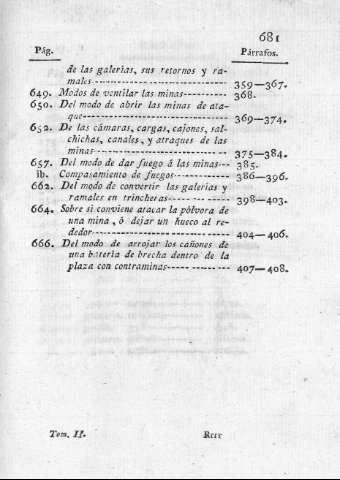 681
Pág. Párrafos.
de las galerías, sus retornos y ra-
males 359—367.
649. Modos de ventilar las minas 368.
650. Del modo de abrir las minas de ata-
que 369—374.
652. De las cámaras, cargas, cajones, sal-
chichas, canales, y atraques de las
minas 375—384.
657. Del modo de dar fuego á las minas 385.
ib. Compasamiento de fuegos 386—396.
662. Del modo de convertir las galerías y
ramales en trincheras 398—403.
664. Sobre si conviene atacar la pólvora de
una mina, ó dejar un hueco al re-
dedor 404—406.
666. Del modo de arrojar los cañones de
una batería de brecha dentro de la
plaza con contraminas 407—408.
Tom. II. Rrrr